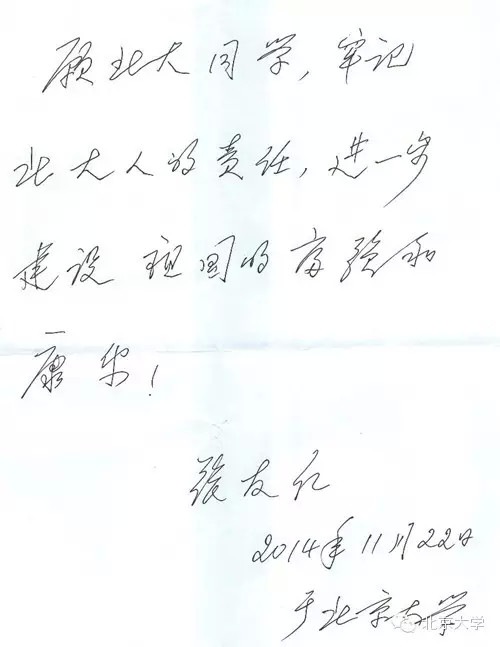 愿北大同学，牢记
北大人的责任，进一步
建设祖国的富强和
康乐！
张友仁
2014年11月22日
于北京大学
北京大学